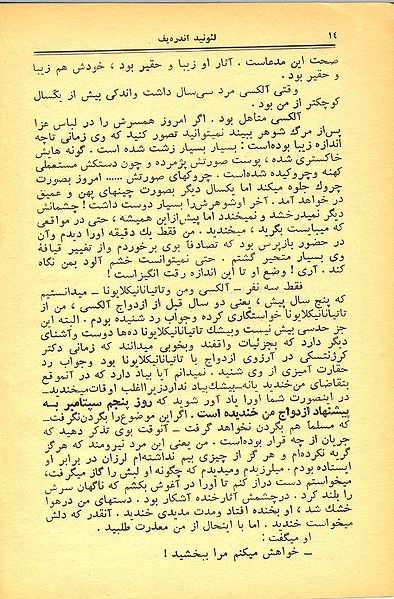 ۱٤ لئونید آندره‌یف
صحت این مدعاست . آثار او زیبا و حقیر بود ، خودش هم زیبا
و حقیر بود .
وقتی آلکسی مرد سی‌سال داشت واندکی بیش از یکسال
کوچکتر از من بود .
آلکسی متأهل بود . اگر امروز همسرش را در لباس عزا
پس‌از مرگ شوهر ببیند نمیتوانید تصور کنید که وی زمانی تاچه
اندازه زیبا بوده‌است : بسیار بسیار زشت شده است . گونه هایش
خاکستری شده ، پوست صورتش پژمرده و چون دستکش مستعملی
کهنه وچروکیده شده‌است . چروکهای صورتش ...... امروز بصورت
چروك جلوه میکند اما یکسال دیگر بصورت چینهای پهن و عمیق
در خواهد آمد . آخر اوشوهرش‌را بسیار دوست داشت ! چشمانش
دیگر نمیدرخشد و نمیخندد اما پیش‌ازاین همیشه ، حتی در مواقعی
که میبایست بگرید ، میخندید . من فقط یك دقیقه اورا دیدم وآن
در حضور بازپرس بود که تصادفاً بوی برخوردم واز تغییر قیافهٔ
وی بسیار متحیر گشتم . حتی نمیتوانست خشم آلود بمن نگاه
کند . آری ! وضع او تا این اندازه رقت انگیزاست !
فقط سه نفر ــ آلکسی ومن وتاتیانانیکلایونا ــ میدانستیم
که پنج سال پیش ، یعنی دو سال قبل از ازدواج آلکسی ، من از
تاتیانانیکلایونا خواستگاری کرده وجواب رد شنیده بودم . البته این
جز حدسی بیش نیست وبیشك تاتیانانیکلایونا ده‌ها دوست وآشنای
دیگر دارد که بجزئیات واقفند وبخوبی میدانند که زمانی دکتر
کرژنتسکی در آرزوی ازدواج با تاتیانانیکلایونا بود وجواب رد
حقارت آمیزی از وی شنید . نمیدانم آیا بیاد دارد که در آنموقع
بتقاضای من‌خندید یانه ــ بیشك‌بیاد نداردزیرااغلب اوقات‌میخندید ــ
در اینصورت شما اورا یاد آور شوید که روز پنجم سپتامبر بــه
پیشنهاد ازدواج من خندیده است . اگراین موضوع‌را بگردن‌نگرفت ــ
که مسلما هم بگردن نخواهد گرفت ــ آنوقت بوی تذکر دهید که
جریان از چه قرار بوده‌است . من یعنی این مرد نیرومند که هرگز
گریه نکرده‌ام و هر گز از چیزی بیم نداشته‌ام لرزان در برابر او
ایستاده بودم . میلرزیدم ومیدیدم که چگونه او لبش را گاز میگرفت،
میخواستم دست دراز کنم تا اورا در آغوش بکشم که ناگهان سرش
را بلند کرد . درچشمش آثارخنده آشکار بود . دستهای من درهوا
خشك شد ، او بخنده افتاد ومدت مدیدی خندید . آنقدر که دلش
میخواست خندید . اما با اینحال از من معذرت طلبید .
او میگفت :
ــ خواهش میکنم مرا ببخشید !